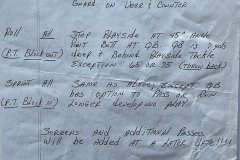 GUARD ON UBER & COUNTER
Roll All STEP PLAYSIDE AT 45° ANGLE
(P.T. BLOCK OUT) FAKE BUTT AT QB. QB IS 7 YDS
DEEP & BEHIND PLAYSIDE TACKLE
EXCEPTION 65 OR 75 (THROW BACK)
SPRINT All SAME AS ABOVE EXCEPT QB
(P.T. BLOCK IN) HAS OPTION TO PASS OR RUN
LONGER DEVELOPING PLAY
SCREENS AND ADDITIONAL PASSES
WILL BE ADDED AT A LATER DATE!!!!